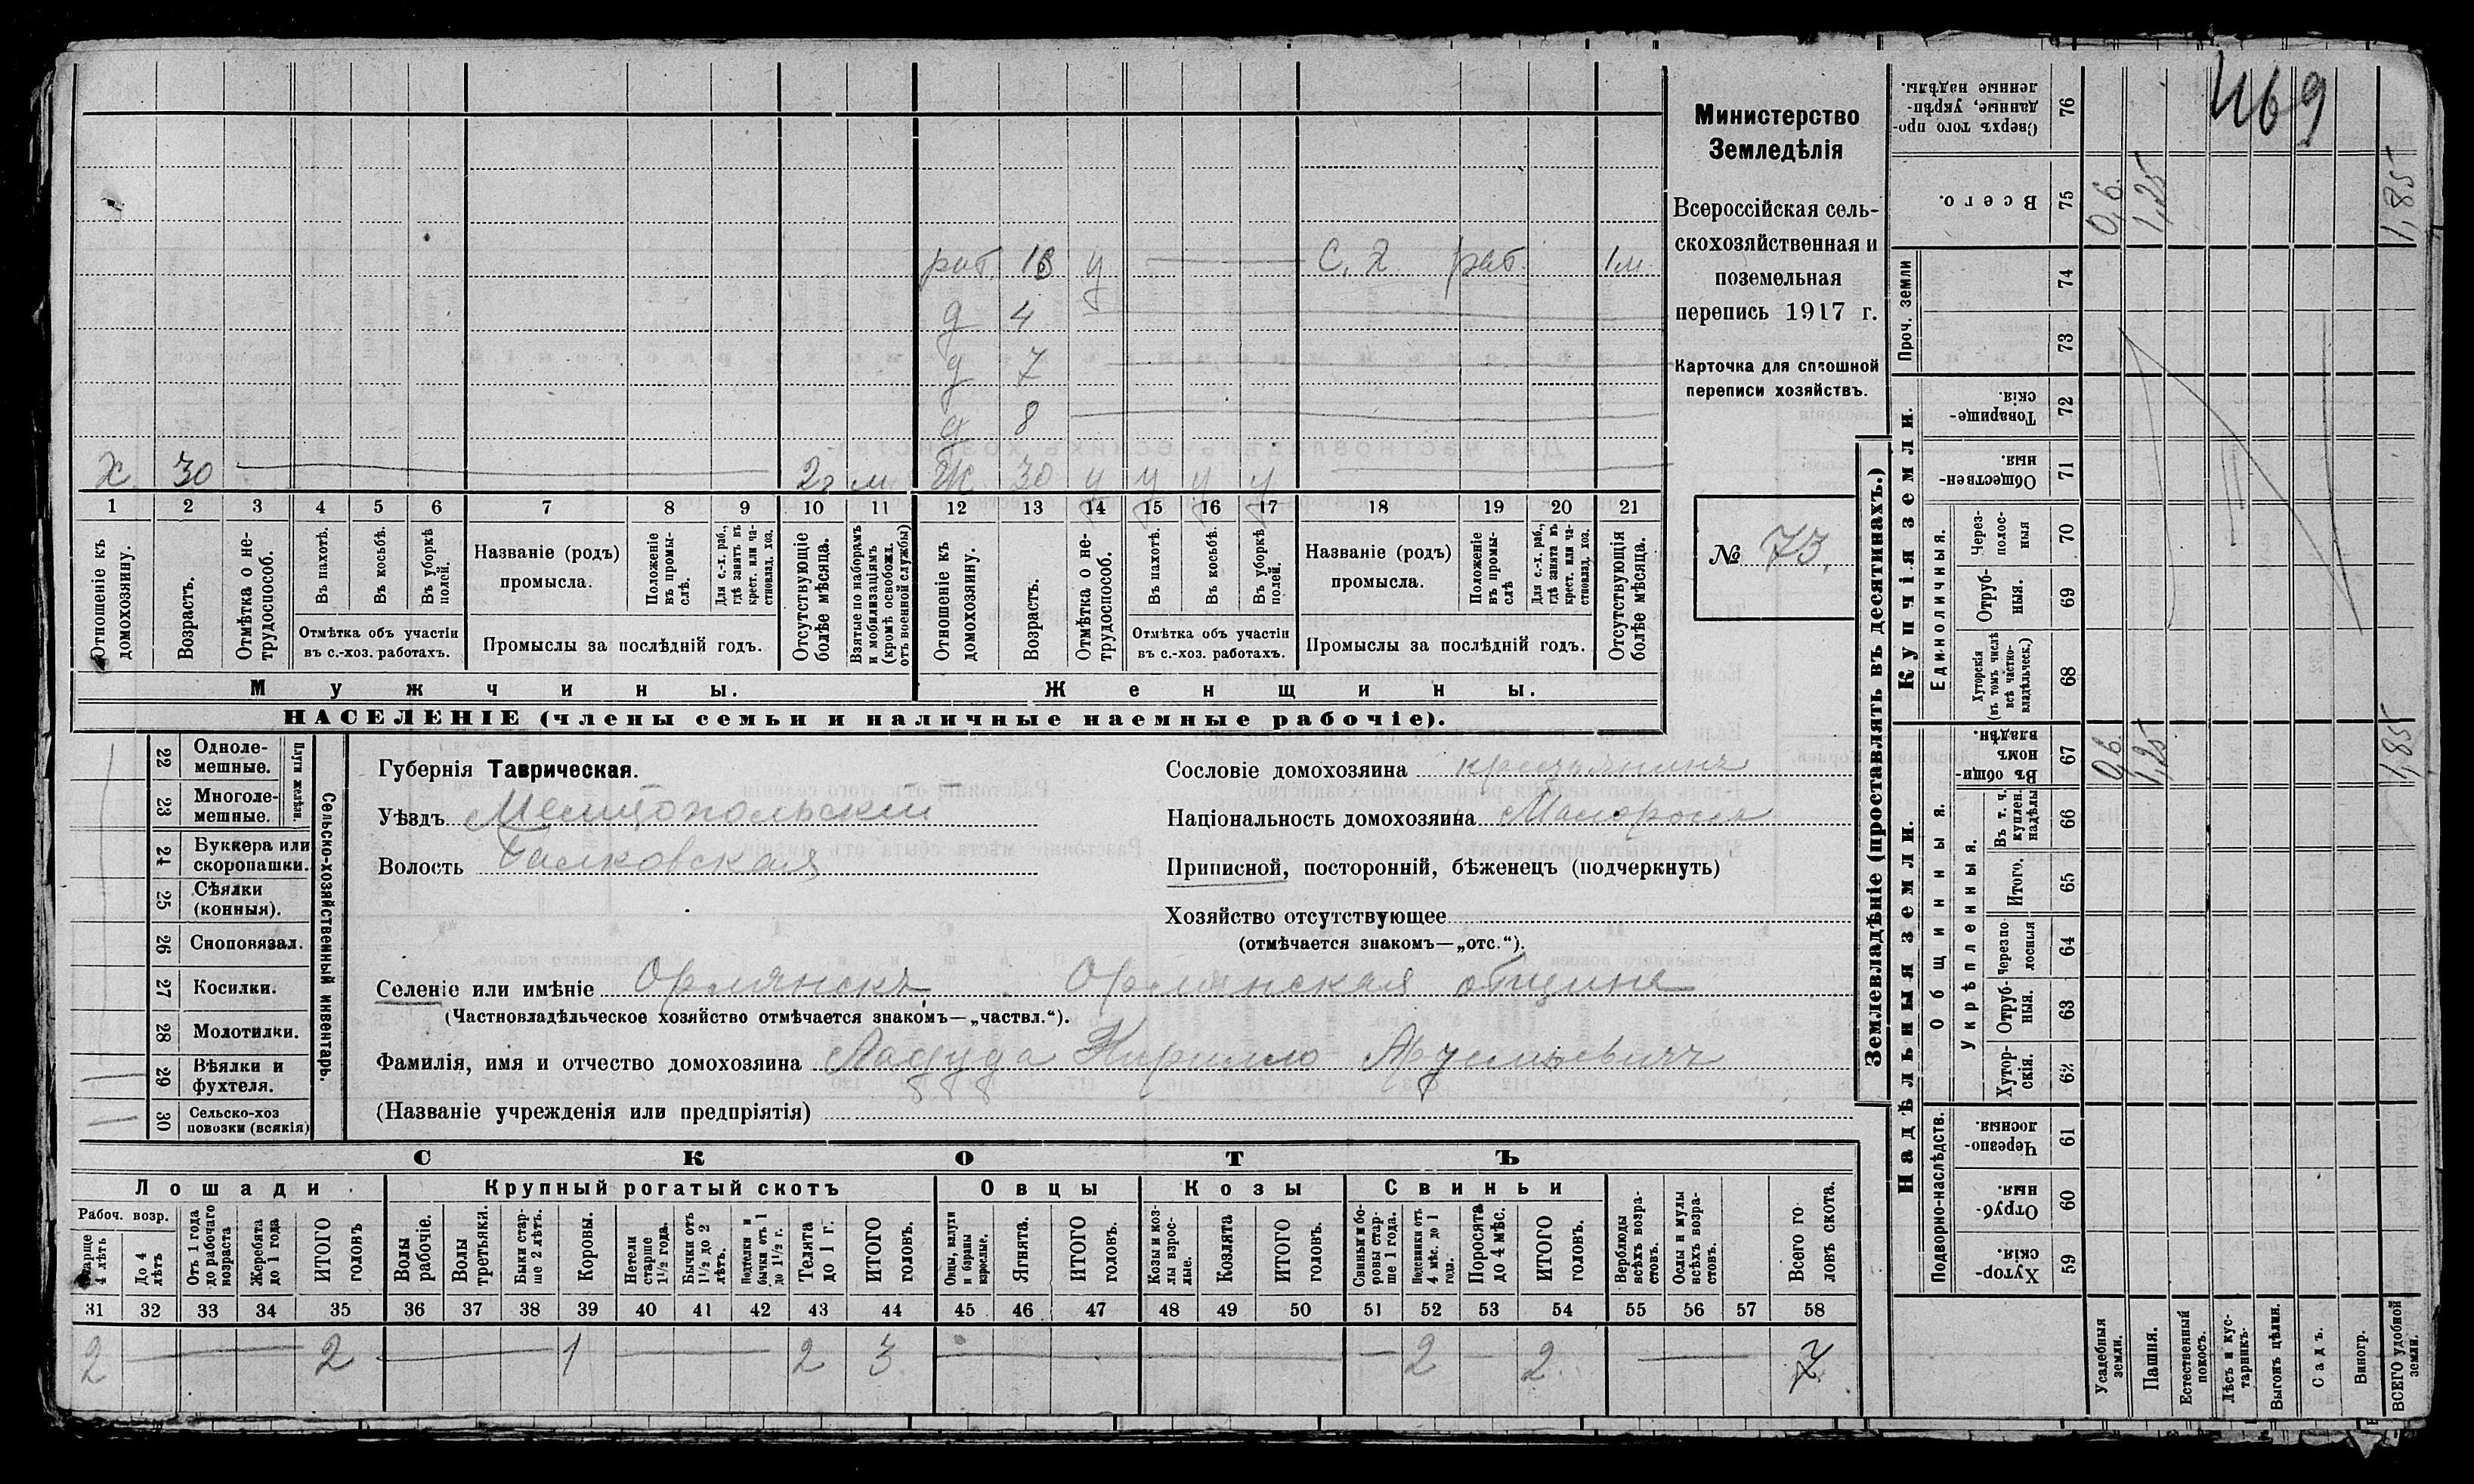 469
Министерство
Земледѣлія
Всероссійская сель-
скохозяйственная и
поземельная
перепись 1917 г.
Карточка для сплошной
переписи хозяйствъ.
№ 73.
раб. у — С. х. раб. 1 м.
д 4
д 7
д 8
х 30 — 2 г м Ж 30 у у у у
1 2 3 4 5 6 7 8 9 10 11 12 13 14 15 16 17 18 19 20 21
Отношеніе къ домохозяину.
Возрастъ.
Отмѣтка о не-трудоспособ.
Въ пахотѣ.
Въ косьбѣ.
Въ уборкѣ полей.
Отмѣтка объ участіи
въ с.-хоз. работахъ.
Названіе (родъ)
промысла.
Положеніе въ промы-слѣ.
Для с.-х. раб., гдѣ занятъ въ крест. или ча-стновлад. хоз.
Промыслы за послѣдній годъ.
Отсутствующіе болѣе мѣсяца.
Взятые по наборамъ и мобилизаціямъ (кромѣ освобожд. отъ военной службы)
Отношеніе къ домохозяину.
Возрастъ.
Отмѣтка о не-трудоспособ.
Въ пахотѣ.
Въ косьбѣ.
Въ уборкѣ полей.
Отмѣтка объ участіи
въ с.-хоз. работахъ.
Названіе (родъ)
промысла.
Положеніе въ промы-слѣ
Для с.-х. раб., гдѣ занята въ крест. или ча-стновлад. хоз.
Промыслы за послѣдній годъ.
Отсутствующія болѣе мѣсяца.
Мужчины.
Женщины.
НАСЕЛЕНІЕ (члены семьи и наличные наемные рабочіе).
Сельско-хозяйственный инвентарь.
Плуги желѣзн.
22 Одноле-мешные.
23 Многоле-мешные.
24 Буккера или скоропашки.
25 Сѣялки (конныя).
26 Сноповязал.
27 Косилки.
28 Молотилки.
29 Вѣялки и фухтеля.
30 Сельско-хоз повозки (всякія)
Губернія Таврическая.
Уѣздъ Мелитопольскій
Волость Балковская
Сословіе домохозяина крестьянинъ
Національность домохозяина Малороссъ
Приписной, посторонній, бѣженецъ (подчеркнуть)
Хозяйство отсутствующее
(отмѣчается знакомъ—„отс.“).
Селеніе или имѣніе Орлянскъ, Орлянская община
(Частновладѣльческое хозяйство отмѣчается знакомъ—„частвл.“).
Фамилія, имя и отчество домохозяина Ладуда Кирилло
(Названіе учрежденія или предпріятія)
СКОТЪ
Лошади
Крупный рогатый скотъ
Овцы
Козы
Свиньи
Рабоч. возр.
Старше 4 лѣтъ
До 4 лѣтъ
Отъ 1 года до рабочаго возраста
Жеребята до 1 года
ИТОГО головъ
Волы рабочіе.
Волы третьяки.
Быки стар-ше 2 лѣтъ.
Коровы.
Нетели старше 1½ года.
Бычки отъ 1½ до 2 лѣтъ.
Подтелки и бычки отъ 1 до 1½ г.
Телята до 1 г.
ИТОГО головъ.
Овцы, валухи и бараны взрослые.
Ягнята.
ИТОГО головъ.
Козы и коз-лы взрос-лые.
Козлята
ИТОГО головъ.
Свиньи и бо-ровы стар-ше 1 года.
Подсвинки отъ 4 мѣс. до 1 года.
Поросята до 4 мѣс.
ИТОГО головъ.
Верблюды всѣхъ возра-стовъ.
Ослы и мулы всѣхъ возра-стовъ.
Всего го-ловъ скота.
31 32 33 34 35 36 37 38 39 40 41 42 43 44 45 46 47 48 49 50 51 52 53 54 55 56 57 58
2 — 2 — 1 — 2 3 — — 2 2 — 7
Землевладѣніе (проставлять въ десятинахъ.)
Надѣльныя земли.
Купчія земли.
Проч. земли
Подворно-наслѣдств.
Общинныя.
Укрѣпленныя.
Единоличныя.
Сверхъ того про-данные, укрѣп-ленные надѣлы. 76
Всего. 75 0,6 1,25 1,85
74
73
Товарище-скія. 72
Обществен-ныя. 71
Через-полос-ныя 70
Отруб-ныя. 69
Хуторскія (въ томъ числѣ всѣ частно-владѣльческ.) 68
Въ общи-номъ владѣн. 67 0,6 1,25 1,85
Въ т. ч. куплен. надѣлы 66
Итого. 65
Черезпо-лосныя 64
Отруб-ныя. 63
Хутор-скія. 62
Черезпо-лосныя. 61
Отруб-ныя. 60
Хутор-скія. 59
Усадебныя земли.
Пашня.
Естественный покосъ.
Лѣсъ и кус-тарникъ.
Выгонъ цѣлин.
Садъ.
Виногр.
ВСЕГО удобной земли.